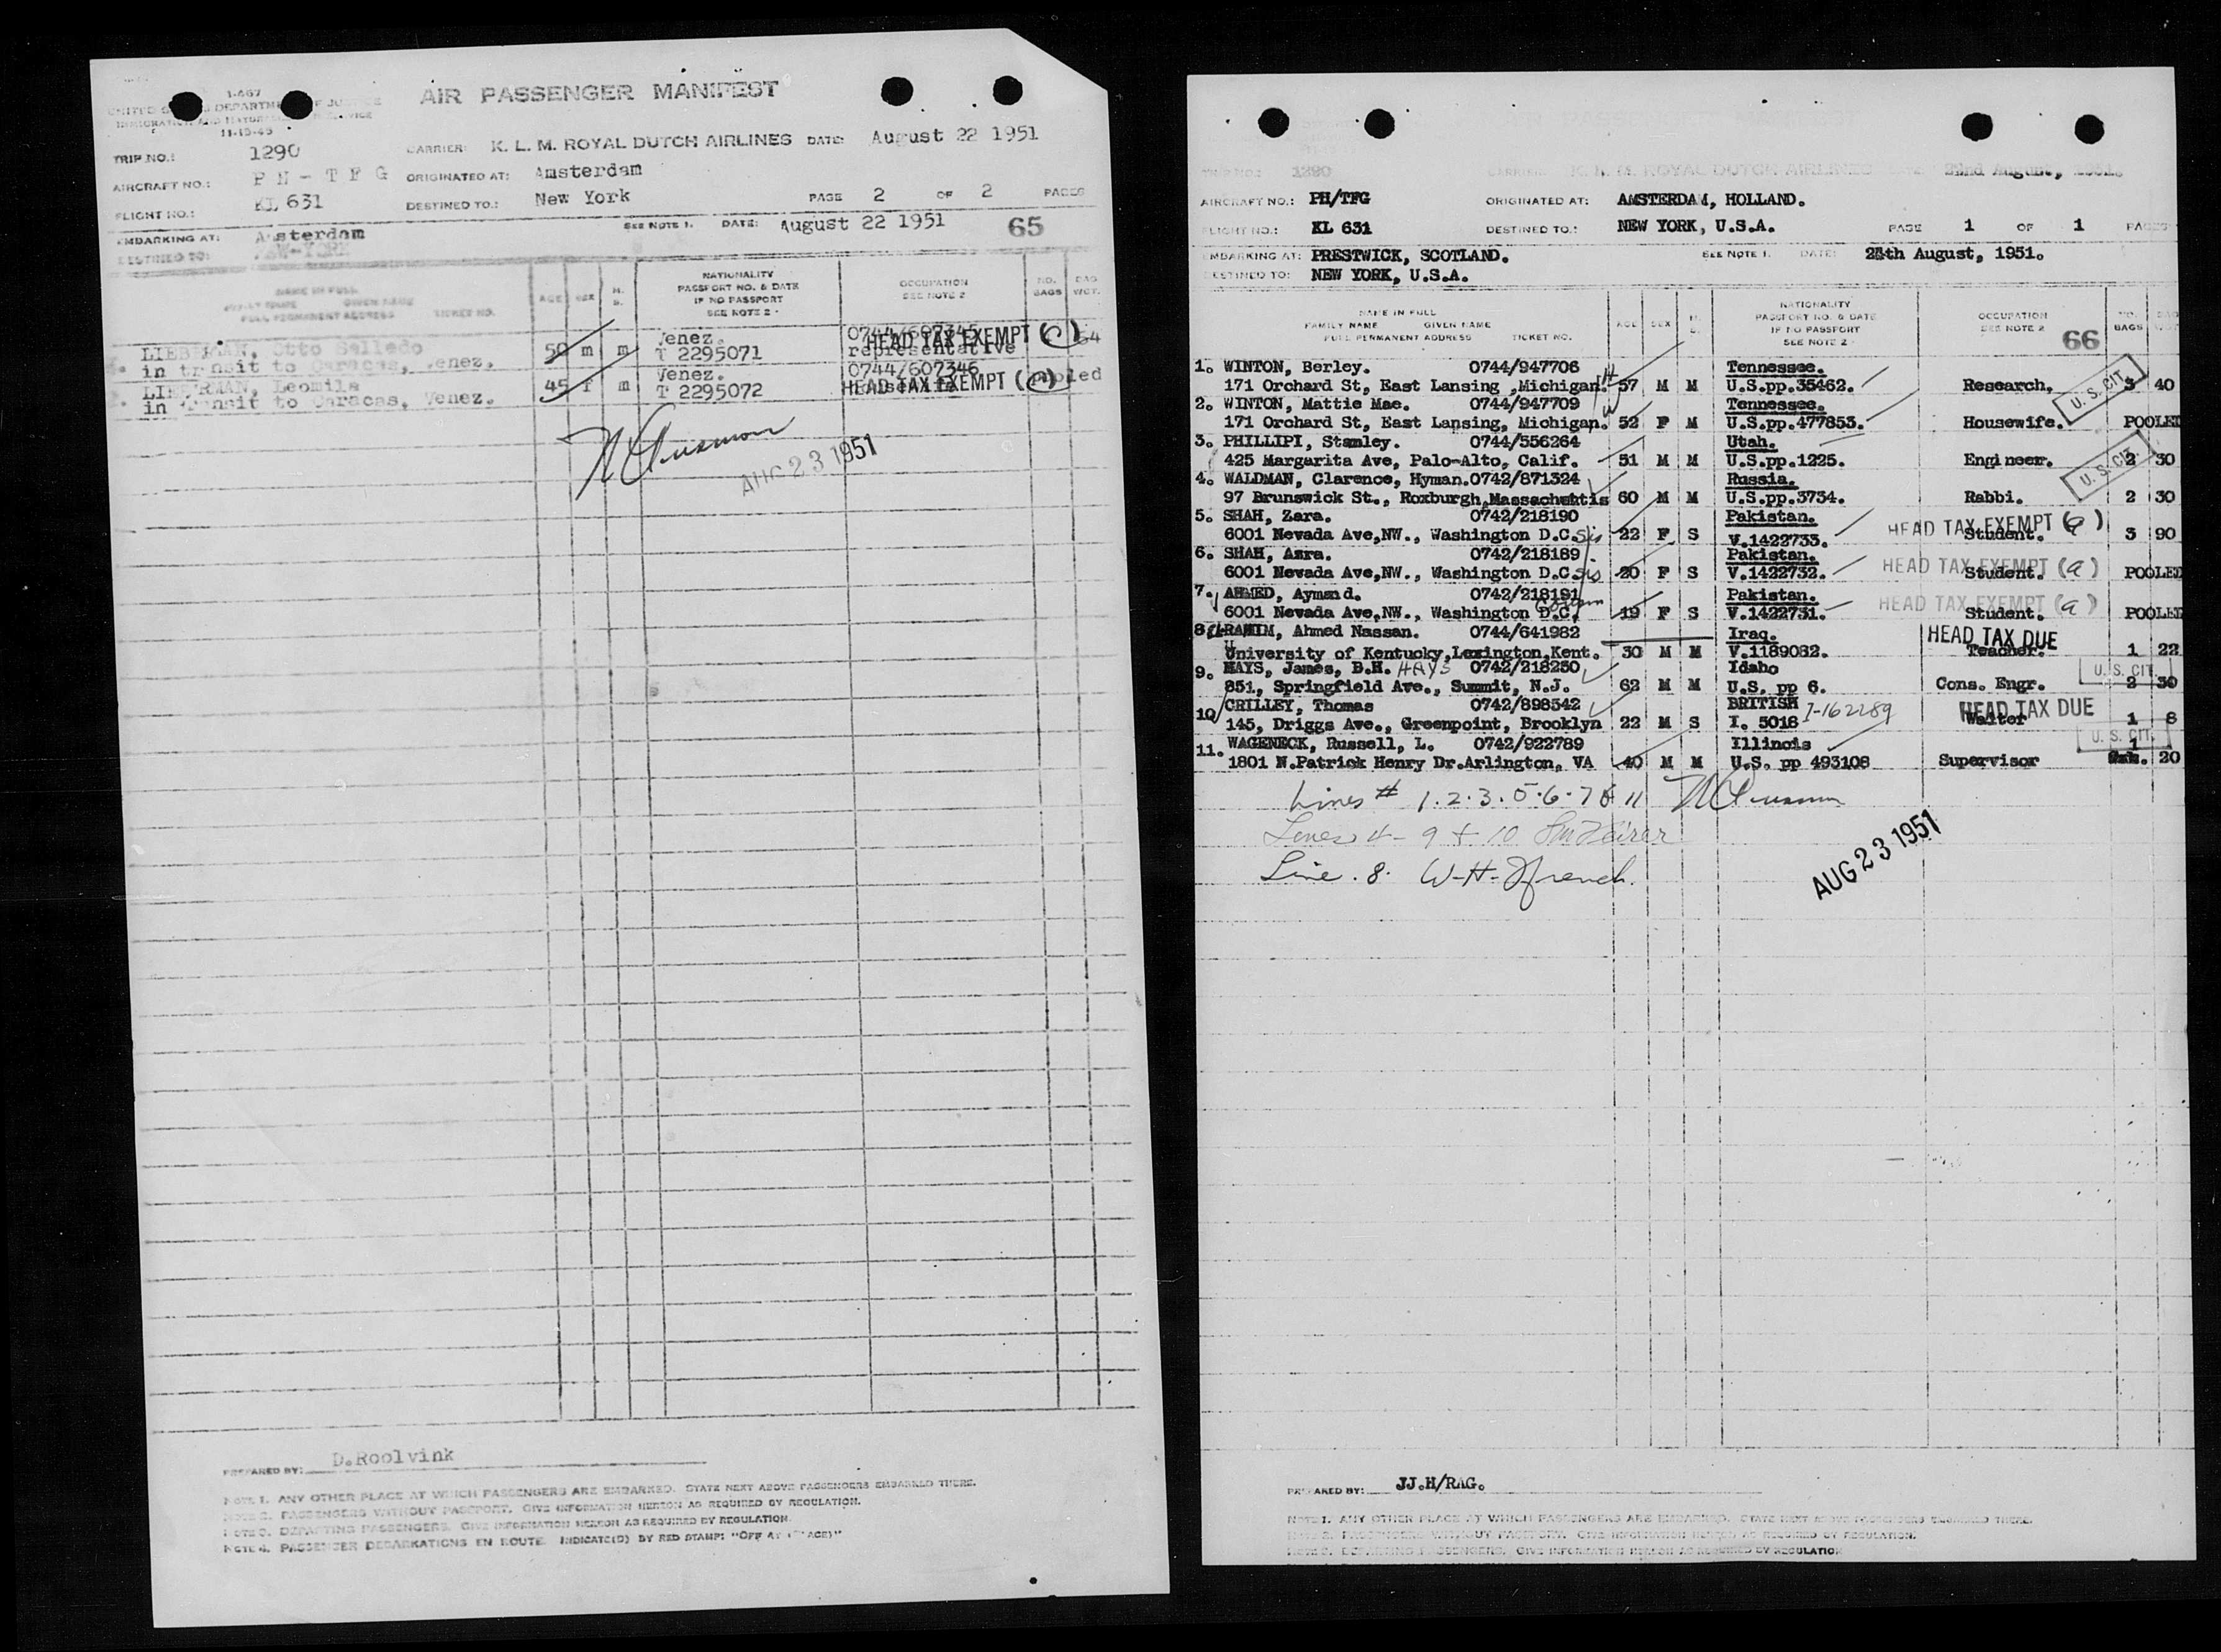 1-467
UNITED S DEPARTM F JUSTICE
11-15-49
AIR PASSENGER MANIFEST
TRIP NO.: 1290 CARRIER: K. L. M. ROYAL DUTCH AIRLINES DATE: August 22 1951
AIRCRAFT NO.: P H - T F G ORIGINATED AT: Amsterdam
FLIGHT NO.: KL 631 DESTINED TO.: New York PAGE 2 OF 2 PAGES
EMBARKING AT: Amsterdam SEE NOTE 1. DATE: August 22 1951 65
DESTINED TO: NEW-YORK
NAME IN FULL
FAMILY NAME GIVEN NAME
FULL PERMANENT ADDRESS TICKET NO.
AGE SEX M. S.
NATIONALITY
PASSPORT NO. & DATE
IF NO PASSPORT
SEE NOTE 2 -
OCCUPATION
SEE NOTE 2
NO. BAGS BAG WGT.
LIEBERMAN, Otto Salledo 50 m m Venez. 0744/607345 HEAD TAX EXEMPT (c) 64
in transit to Caracas, Venez. T 2295071 representative
LIEBERMAN, Leomila 45 f m Venez. 0744/607346 pooled
in Transit to Caracas, Venez. T 2295072 HEAD TAX EXEMPT (c)
AUG 23 1951
PREPARED BY: D.Roolvink
NOTE 1. ANY OTHER PLACE AT WHICH PASSENGERS ARE EMBARKED. STATE NEXT ABOVE PASSENGERS EMBARKED THERE.
NOTE 2. PASSENGERS WITHOUT PASSPORT. GIVE INFORMATION HEREON AS REQUIRED BY REGULATION.
NOTE 3. DEPARTING PASSENGERS. GIVE INFORMATION HEREON AS REQUIRED BY REGULATION.
NOTE 4. PASSENGER DEBARKATIONS EN ROUTE. INDICATE(D) BY RED STAMP: "OFF AT ( ACE)"
TRIP NO.: 1290 CARRIER: K. L. M. ROYAL DUTCH AIRLINES DATE 22nd August, 1951.
AIRCRAFT NO.: PH/TFG ORIGINATED AT: AMSTERDAM, HOLLAND.
FLIGHT NO.: KL 631 DESTINED TO.: NEW YORK, U.S.A. PAGE 1 OF 1 PAGES
EMBARKING AT: PRESTWICK, SCOTLAND. SEE NOTE 1. DATE: August, 1951.
DESTINED TO: NEW YORK, U.S.A.
NAME IN FULL
FAMILY NAME GIVEN NAME
FULL PERMANENT ADDRESS TICKET NO.
AGE SEX M. S.
NATIONALITY
PASSPORT NO. & DATE
IF NO PASSPORT
SEE NOTE 2 -
OCCUPATION
SEE NOTE 2
66
NO. BAGS BAG WGT.
1. WINTON, Berley. 0744/947706 Tennessee.
171 Orchard St, East Lansing ,Michigan. H 57 M M U.S.pp.35462. Research. 3 40 U. S. CIT.
2. WINTON, Mattie Mae. 0744/947709 W Tennessee.
171 Orchard St, East Lansing, Michigan. 52 F M U.S.pp.477853. Housewife. POOLED
3. PHILLIPI, Stanley. 0744/556264 Utah.
425 Margarita Ave, Palo-Alto, Calif. 51 M M U.S.pp.1225. Engineer. 2 30 U. S. CIT.
4. WALDMAN, Clarence, Hyman. 0742/871324 Russia.
97 Brunswick St., Roxburgh, Massachustis 60 M M U.S.pp.3734. Rabbi. 2 30
5. SHAH, Zara. 0742/218190 Pakistan. HEAD TAX EXEMPT (a)
6001 Nevada Ave,NW., Washington D.C. sis 22 F S V.1422733. Student. 3 90
6. SHAH, Azra. 0742/218189 Pakistan. HEAD TAX EXEMPT (a)
6001 Nevada Ave,NW., Washington D.C. sis 20 F S V.1422732. Student. POOLED
7. AHMED, Aymand. 0742/218191 Pakistan. HEAD TAX EXEMPT (a)
6001 Nevada Ave,NW., Washington D.C. 19 F S V.1422731. Student. POOLED
8. RAHIM, Ahmed Nassan. 0744/641982 Iraq. HEAD TAX DUE
University of Kentucky,Lexington,Kent. 30 M M V.1189082. Teacher. 1 22
9. MAYS, James, B.H. HAYS 0742/218250 Idaho U. S. CIT.
851, Springfield Ave., Summit, N.J. 62 M M U.S. pp 6. Cons. Engr. 2 30
10 CRILLEY, Thomas 0742/898542 BRITISH I-162289 HEAD TAX DUE
145, Driggs Ave., Greenpoint, Brooklyn 22 M S I. 5018 Waiter 1 8
11. WAGENECK, Russell, L. 0742/922789 Illinois U. S. CIT. 1
1801 N.Patrick Henry Dr.Arlington, VA 40 M M U.S. pp 493108 Supervisor 20
Lines # 1.2.3.5.6.7 & 11
Lines 4 - 9 + 10
Line . 8. W-H-French.
AUG 23 1951
PREPARED BY: JJ.H/RAG.
NOTE 1. ANY OTHER PLACE AT WHICH PASSENGERS ARE EMBARKED. STATE NEXT ABOVE PASSENGERS EMBARKED THERE.
NOTE 2. PASSENGERS WITHOUT PASSPORT. GIVE INFORMATION HEREON AS REQUIRED BY REGULATION.
NOTE 3. DEPARTING PASSENGERS. GIVE INFORMATION HEREON AS REQUIRED BY REGULATION